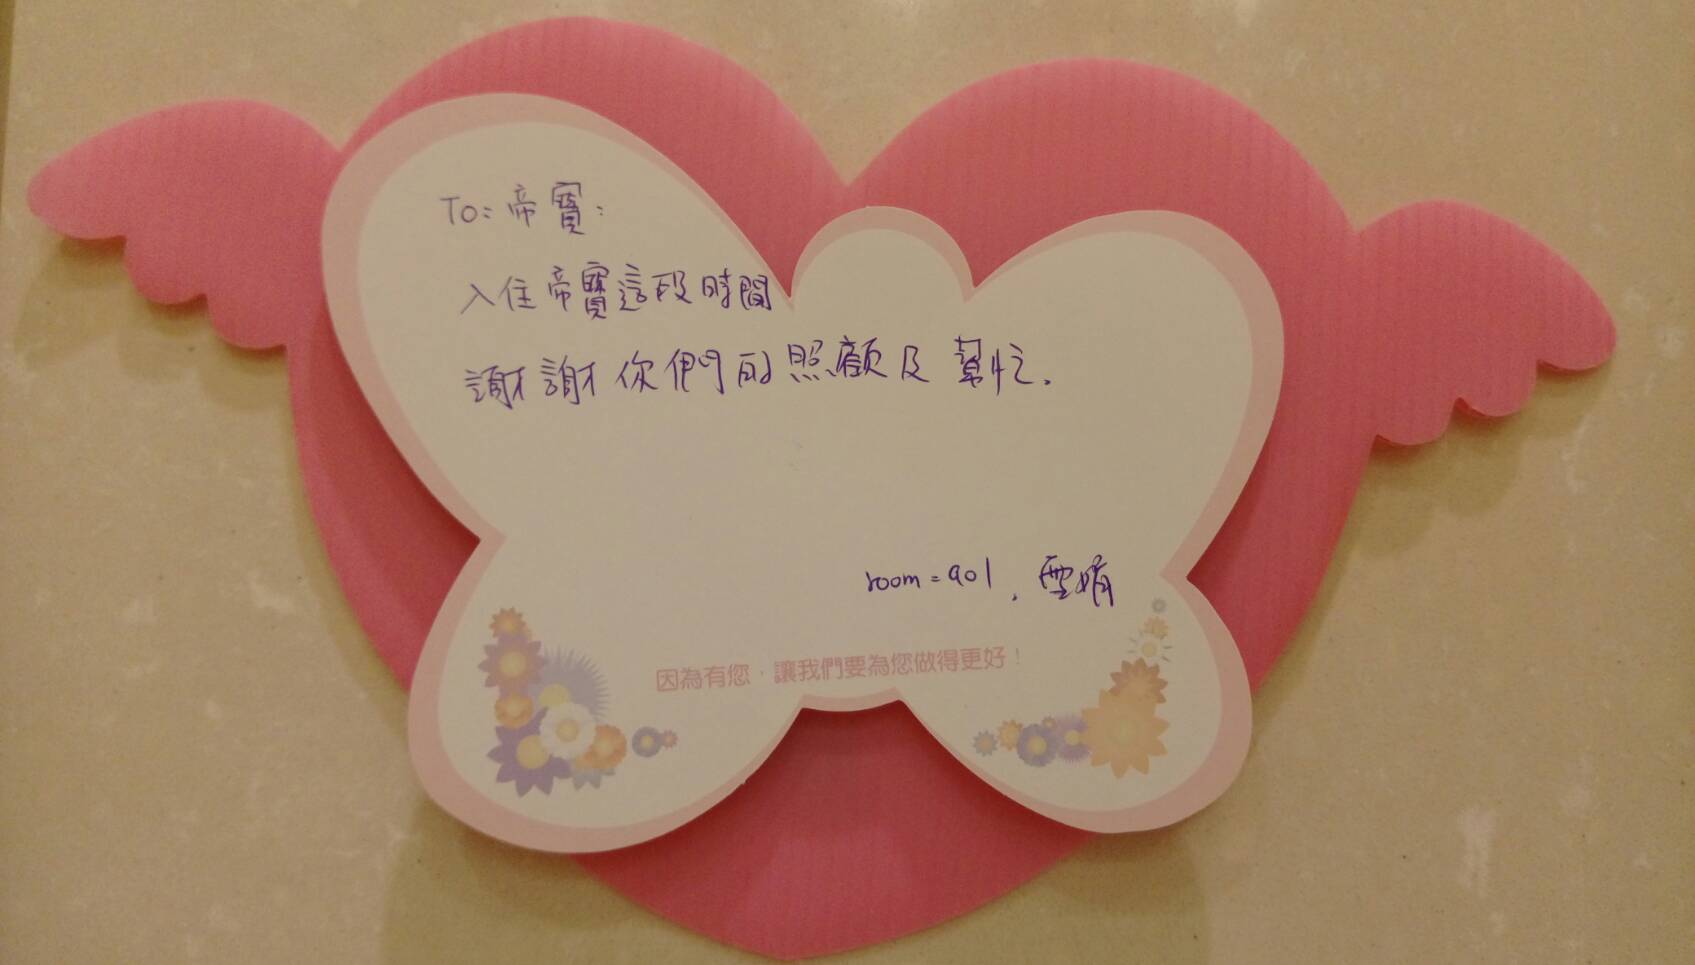 To: 帝寶:
入住帝寶這段時間
謝謝你們的照顧及幫忙.
room = 901 .
因為有您，讓我們要為您做得更好！